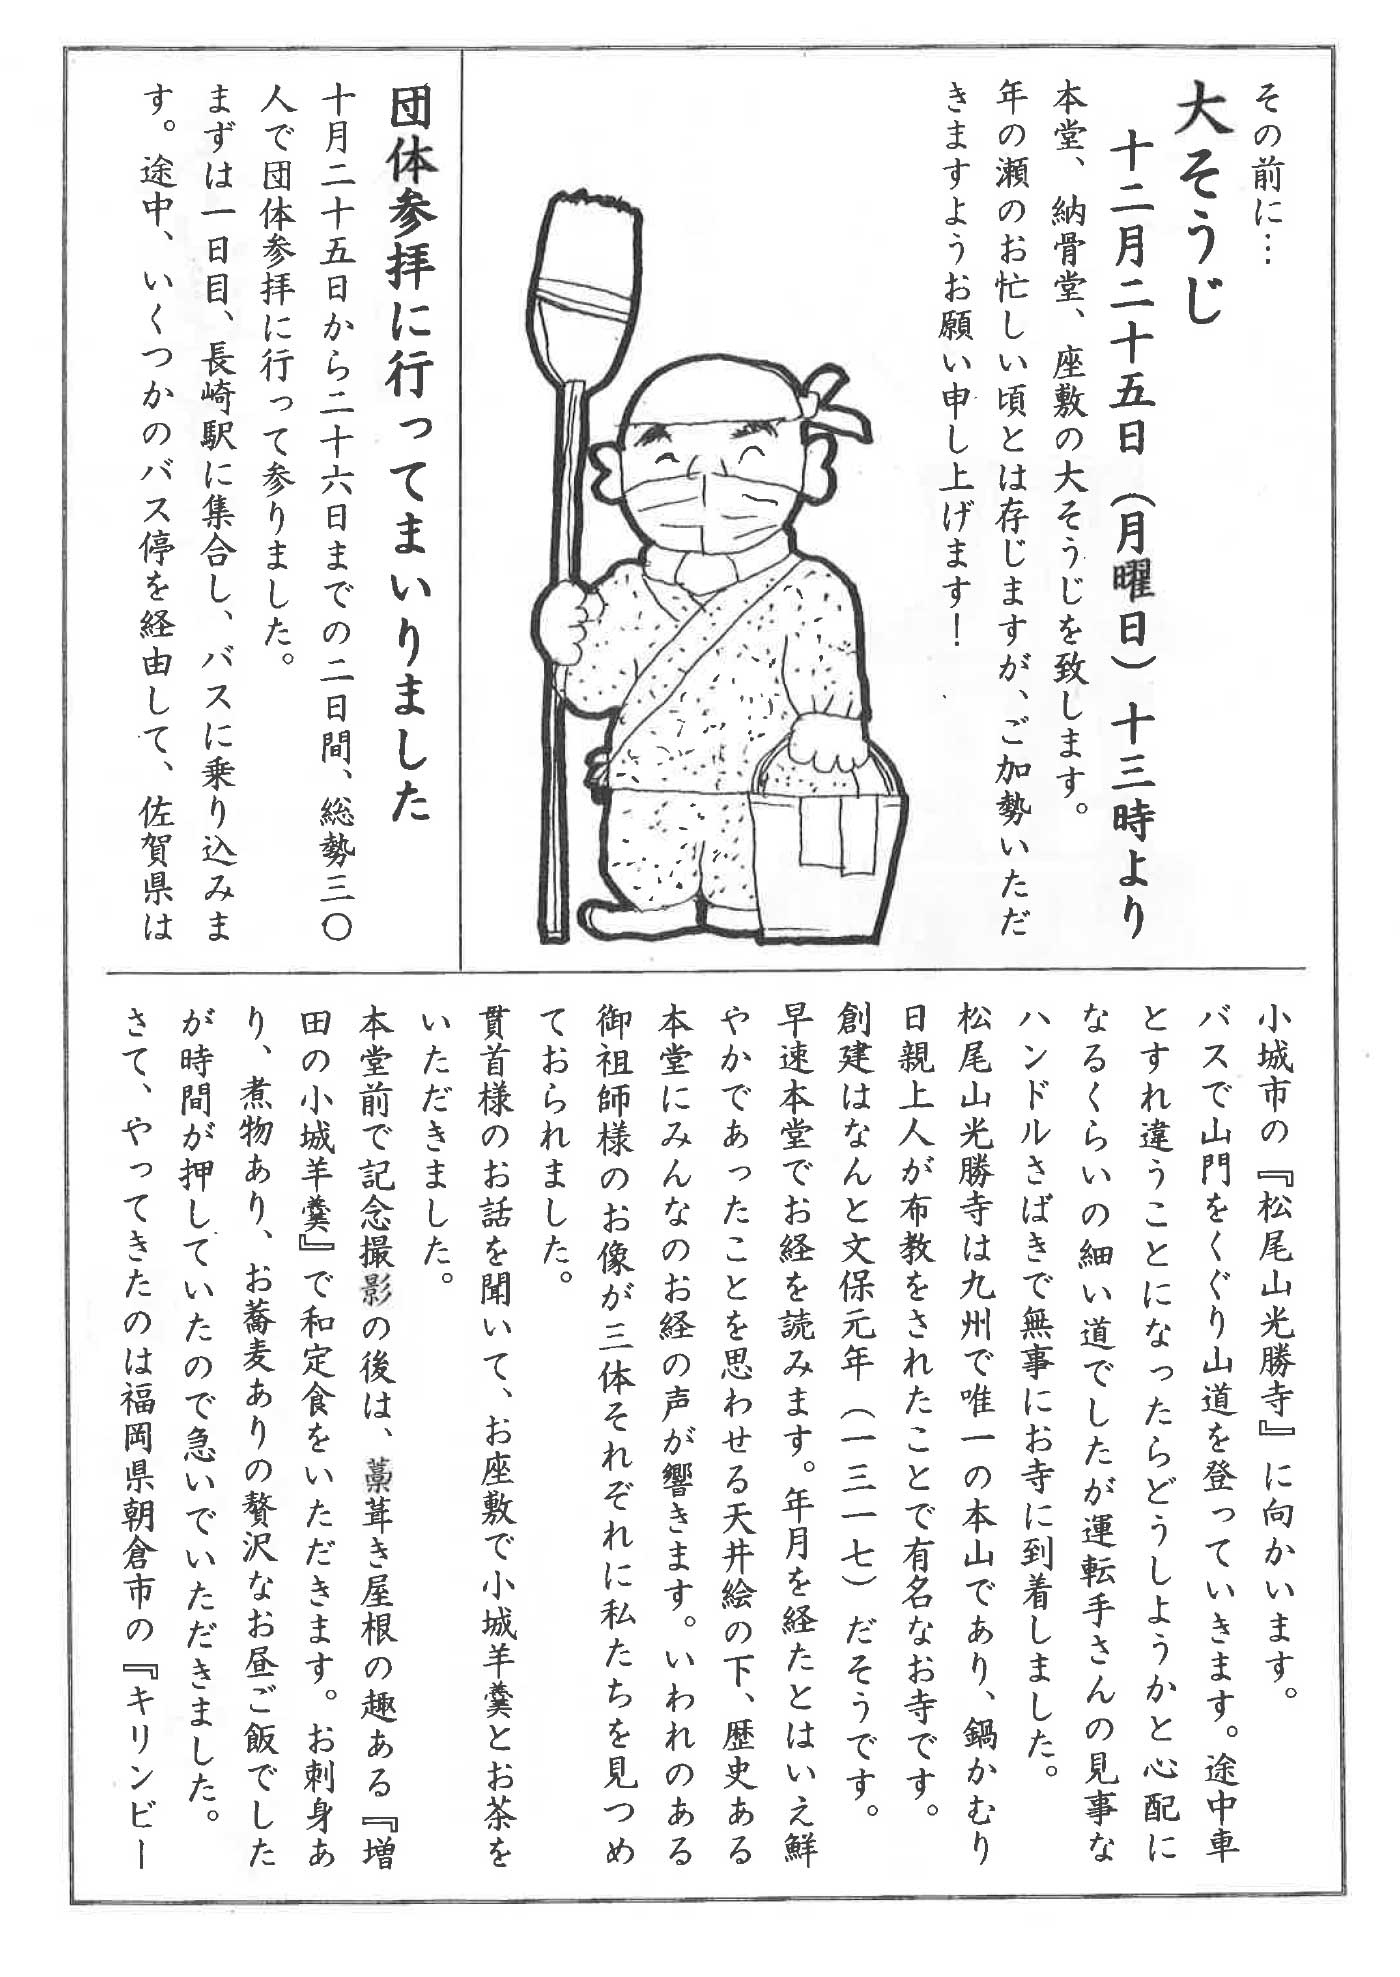 その前に…
大そうじ
十二月二十五日（月曜日）十三時より
本堂、納骨堂、座敷の大そうじを致します。
年の瀬のお忙しい頃とは存じますが、ご加勢いただ
きますようお願い申し上げます！
団体参拝に行ってまいりました
十月二十五日から二十六日までの二日間、総勢三〇
人で団体参拝に行って参りました。
まずは一日目、長崎駅に集合し、バスに乗り込みま
す。途中、いくつかのバス停を経由して、佐賀県は
小城市の『松尾山光勝寺』に向かいます。
バスで山門をくぐり山道を登っていきます。途中車
とすれ違うことになったらどうしようかと心配に
なるくらいの細い道でしたが運転手さんの見事な
ハンドルさばきで無事にお寺に到着しました。
松尾山光勝寺は九州で唯一の本山であり、鍋かむり
日親上人が布教をされたことで有名なお寺です。
創建はなんと文保元年（一三一七）だそうです。
早速本堂でお経を読みます。年月を経たとはいえ鮮
やかであったことを思わせる天井絵の下、歴史ある
本堂にみんなのお経の声が響きます。いわれのある
御祖師様のお像が三体それぞれに私たちを見つめ
ておられました。
貫首様のお話を聞いて、お座敷で小城羊羹とお茶を
いただきました。
本堂前で記念撮影の後は、藁葺き屋根の趣ある『増
田の小城羊羹』で和定食をいただきます。お刺身あ
り、煮物あり、お蕎麦ありの贅沢なお昼ご飯でした
が時間が押していたので急いでいただきました。
さて、やってきたのは福岡県朝倉市の『キリンビー